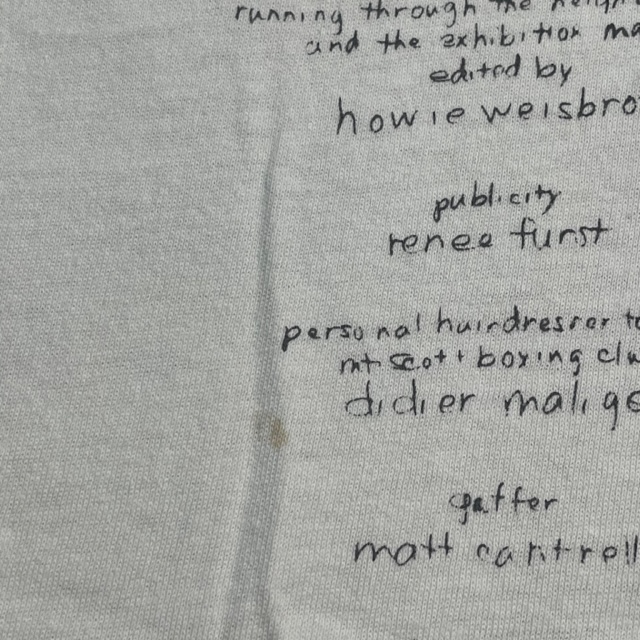 running through the
and the exhibition ma
edited by
howie weisbro
publicity
renee furst
personal hairdresser to
mt scott boxing clu
didier malige
gaffer
matt cantrell